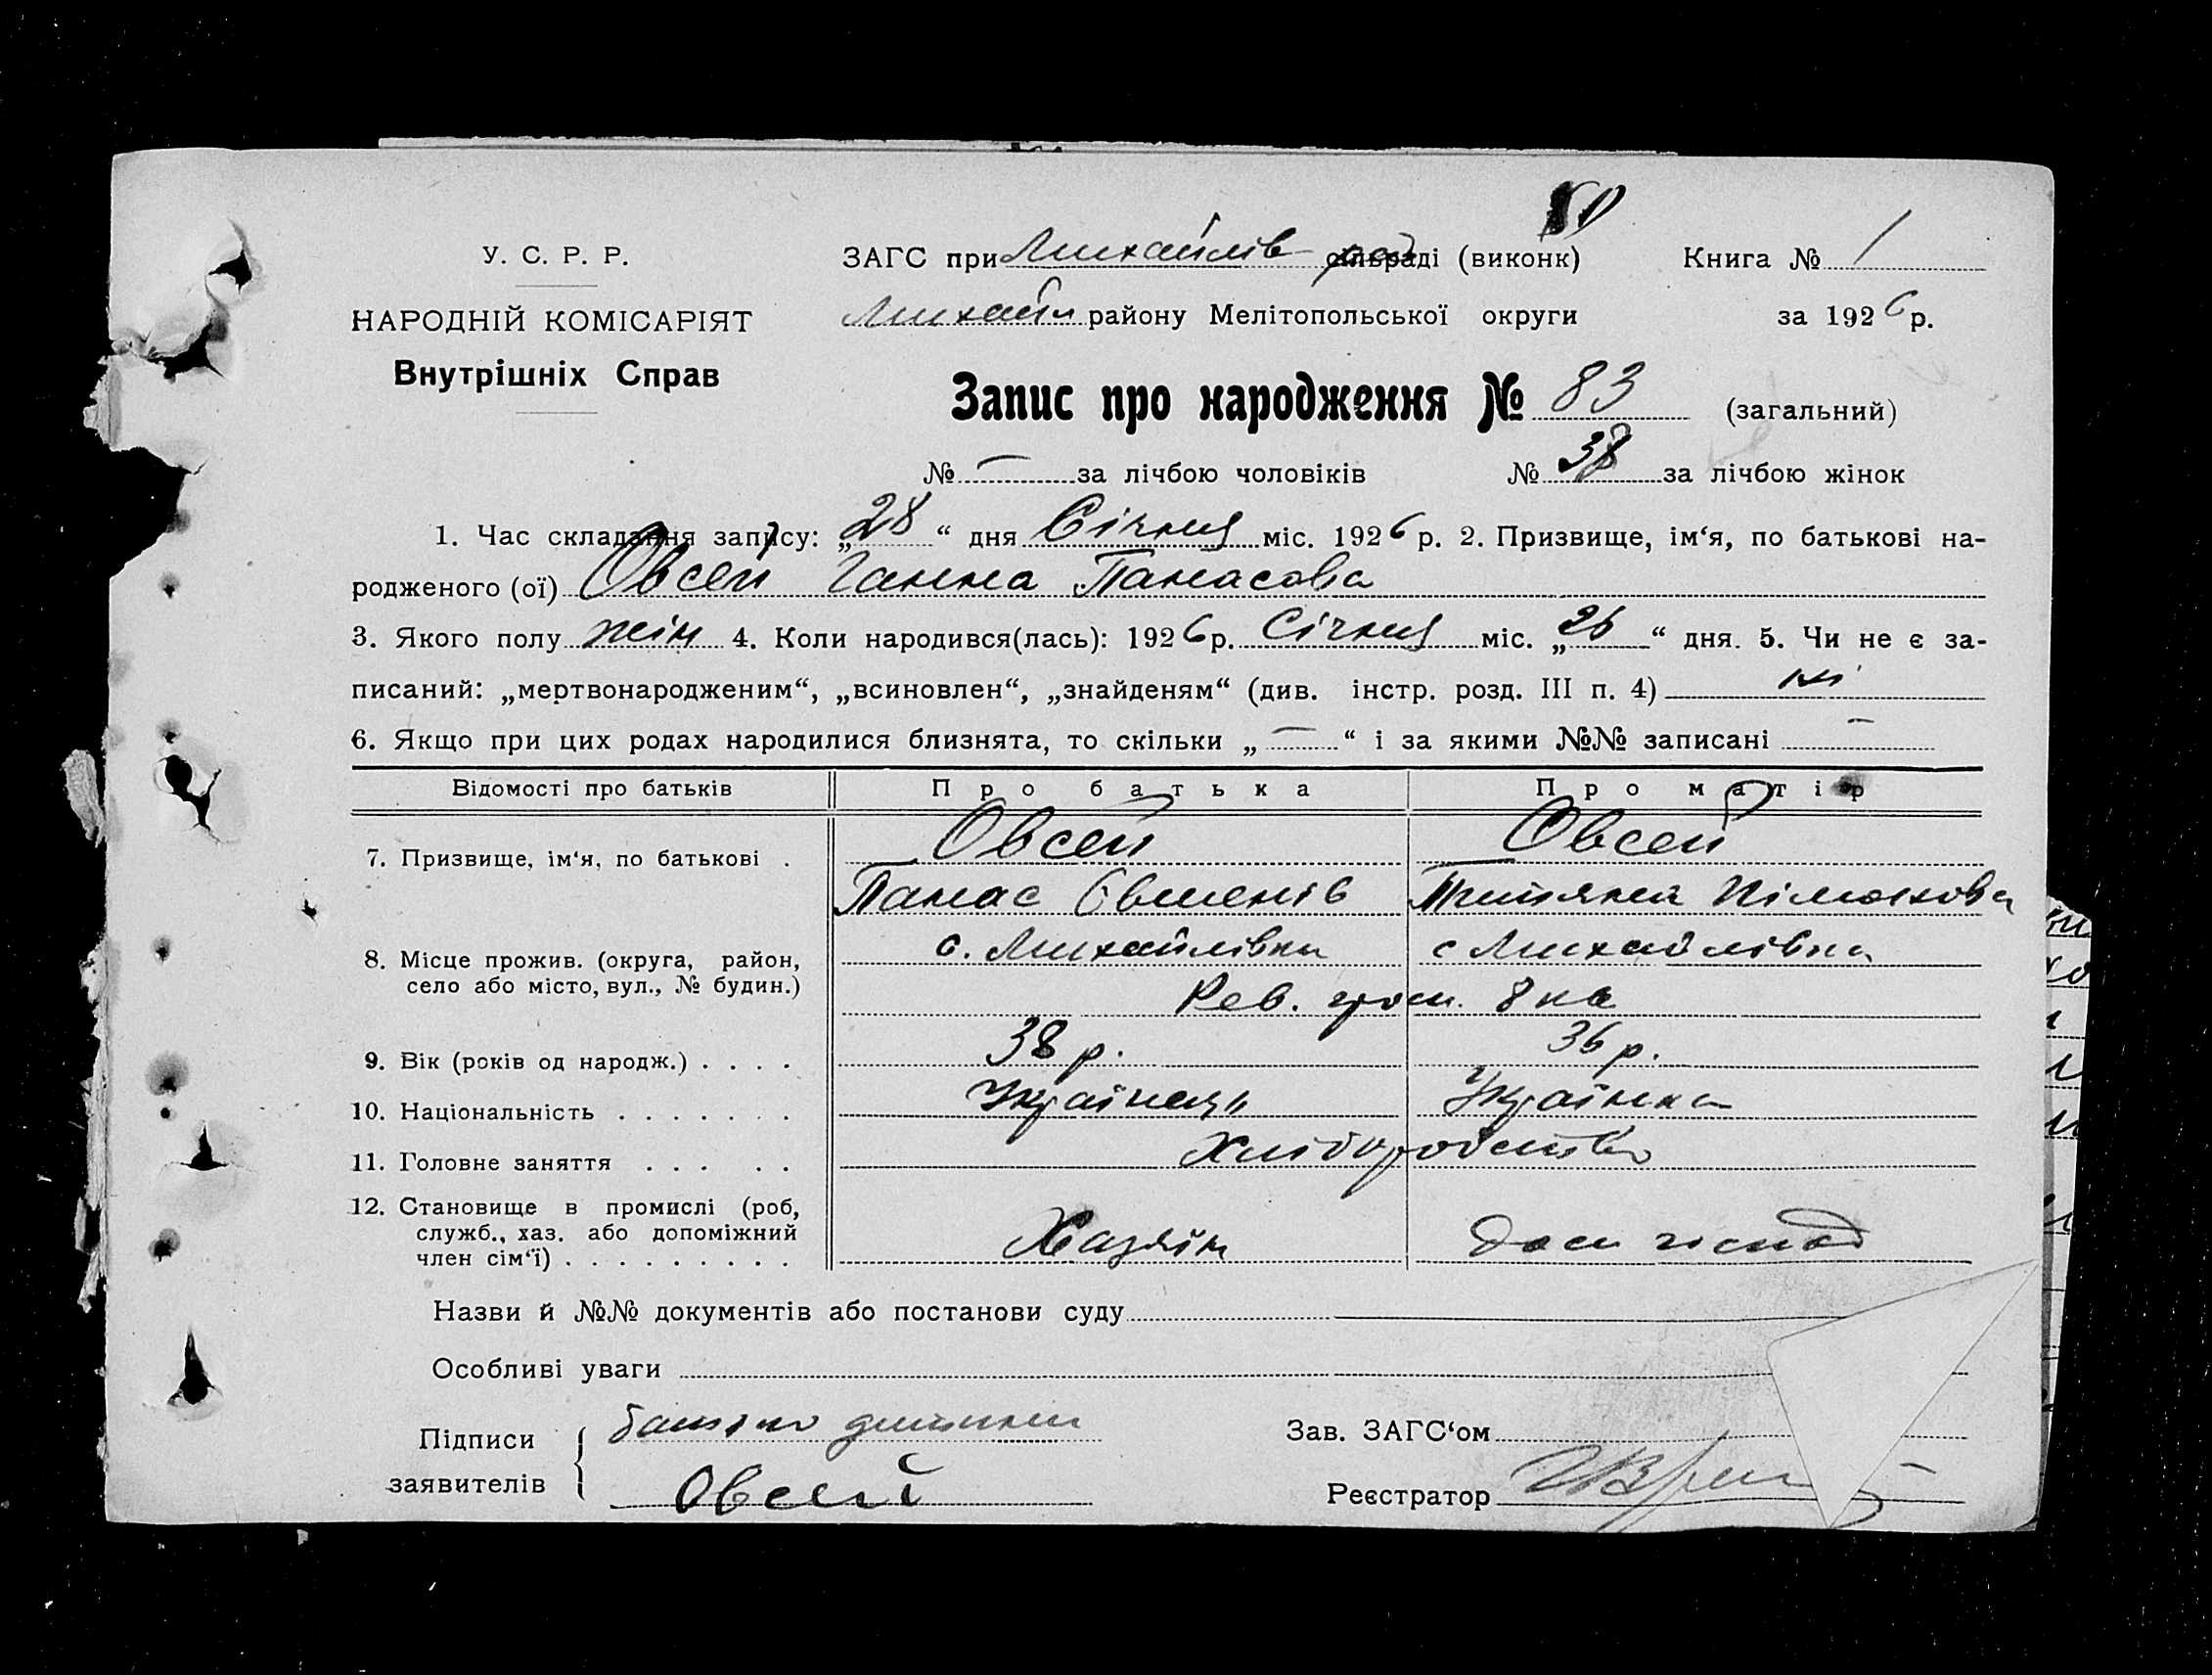 80
У. С. Р. Р.
НАРОДНІЙ КОМІСАРІЯТ
Внутрішніх Справ
ЗАГС при Михайлів сільраді (виконк) Книга № 1
Михайл району Мелітопольської округи за 1926 р.
Запис про народження № 83 (загальний)
№ — за лічбою чоловіків № 38 за лічбою жінок
1. Час складання запису: „28“ дня Січня міс. 1926 р. 2. Призвище, ім‘я, по батькові на-
родженого (ої) Овсей Ганна Панасова
3. Якого полу жін 4. Коли народився(лась): 1926 р. Січня міс. „26“ дня. 5. Чи не є за-
писаний: „мертвонародженим“, „всиновлен“, „знайденям“ (див. інстр. розд. III п. 4) ні
6. Якщо при цих родах народилися близнята, то скільки „—“ і за якими №№ записані —
Відомості про батьків Про батька Про матір
7. Призвище, ім‘я, по батькові . Овсей Овсей
Панас Тетяна
8. Місце прожив. (округа, район, с. Михайлівка с Михайлівка
село або місто, вул., № будин.) Рев. 8 кв
9. Вік (років од народж.) . . . . 38 р. 36 р.
10. Національність . . . . . . . Українець Українка
11. Головне заняття . . . . . Хліборобство
12. Становище в промислі (роб,
служб., хаз. або допоміжний
член сім‘ї) . . . . . . . . . Хазяїн Дом господ
Назви й №№ документів або постанови суду
Особливі уваги
Підписи батько дитини Зав. ЗАГС‘ом
заявителів Овсей Реєстратор